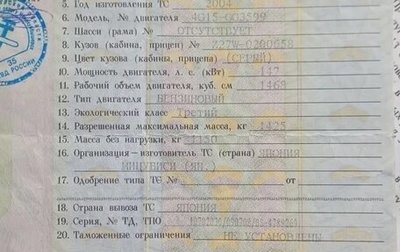 5. Год изготовления ТС 2004
6. Модель, № двигателя 4G15-G03599
7. Шасси (рама) № ОТСУТСТВУЕТ
8. Кузов (кабина, прицеп) № Z27W-0200658
9. Цвет кузова (кабины, прицепа) (СЕРЫЙ)
10. Мощность двигателя, л. с. (кВт) 147
11. Рабочий объем двигателя, куб. см 1468
12. Тип двигателя БЕНЗИНОВЫЙ
13. Экологический класс Третий
14. Разрешенная максимальная масса, кг 1425
15. Масса без нагрузки, кг 1150
16. Организация-изготовитель ТС (страна) ЯПОНИЯ
МИЦУБИСИ (ЯП.)
17. Одобрение типа ТС № от
18. Страна вывоза ТС ЯПОНИЯ
19. Серия, № ТД, ТПО
20. Таможенные ограничения НЕ УСТАНОВЛЕНЫ
38
МВД РОССИИ